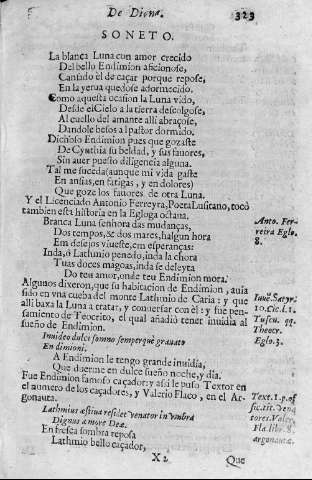 De Diana.
323
SONETO.
La blanca Luna con amor crecido
Del bello Endimion aficionose,
Cansado èl de caçar porque repose,
En la yerua quedose adormecido.
Como aquesta ocasion la Luna vido,
Desde el Cielo a la tierra descolgose,
Al cuello del amante alli abraçose,
Dandole besos al pastor dormido.
Dichoso Endimion pues que gozaste
De Cynthia su beldad, y sus fauores,
Sin auer puesto diligencia alguna.
Tal me suceda (aunque mi vida gaste
En ansias, en fatigas, y en dolores)
Que goze los fauores de otra Luna.
Y el Licenciado Antonio Ferreyra, Poeta Lusitano, tocò
tambien esta historia en la Egloga octaua.
Branca Luna senhora das mudanças,
Dos tempos, & dos mares, halgun hora
Em desejos viueste, em esperanças:
Inda, ò Lathmio penoso, inda la chora
Tuas doces magoas, inda se deleyta
Do teu amor, onde teu Endimion mora.
Anto. Fer-
reira Eglo.
8.
Algunos dixeron, que su habitacion de Endimion, auia
sido en vna cueba del monte Lathmio de Caria: y que
alli baxa la Luna a tratar, y conuersar con èl: y fue pen-
samiento de Teocrito, el qual añadiò tener inuidia al
sueño de Endimion.
Iuue. Satyr.
10. Cic. l. 1.
Tuscu. qq.
Theocr.
Eglo. 3.
Inuideo dulci somno semperque grauato
Endimioni.
A Endimion le tengo grande inuidia,
Que duerme en dulce sueño noche, y dia.
Fue Endimion famoso caçador: y assi le puso Textor en
el numero de los caçadores, y Valerio Flaco, en el Ar-
gonauta.
Text. 1. p. of
fic. tit. Vena
tores. Valer.
Fla. lib. 8.
argonautæ.
Lathmius æstiua residet venator in vmbra
Dignus amore Deæ.
En fresca sombra reposa
Lathmio bello caçador,
X 2
Que